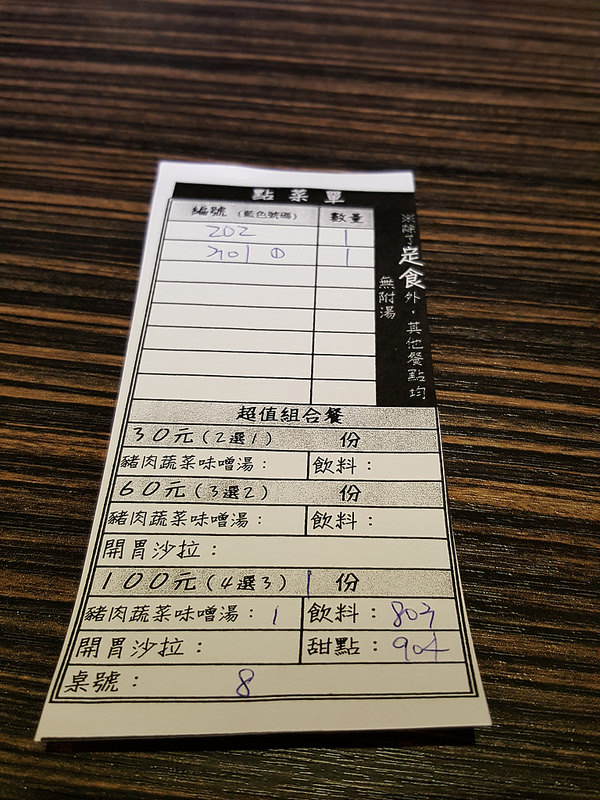 點菜單
編號（藍色號碼） 數量
202 1
701 ① 1
※除了定食外，其他餐點均
無附湯
超值組合餐
30元（2選1） 份
豬肉蔬菜味噌湯： 飲料：
60元（3選2） 份
豬肉蔬菜味噌湯： 飲料：
開胃沙拉：
100元（4選3） 1 份
豬肉蔬菜味噌湯：1 飲料：803
開胃沙拉： 甜點：904
桌號： 8